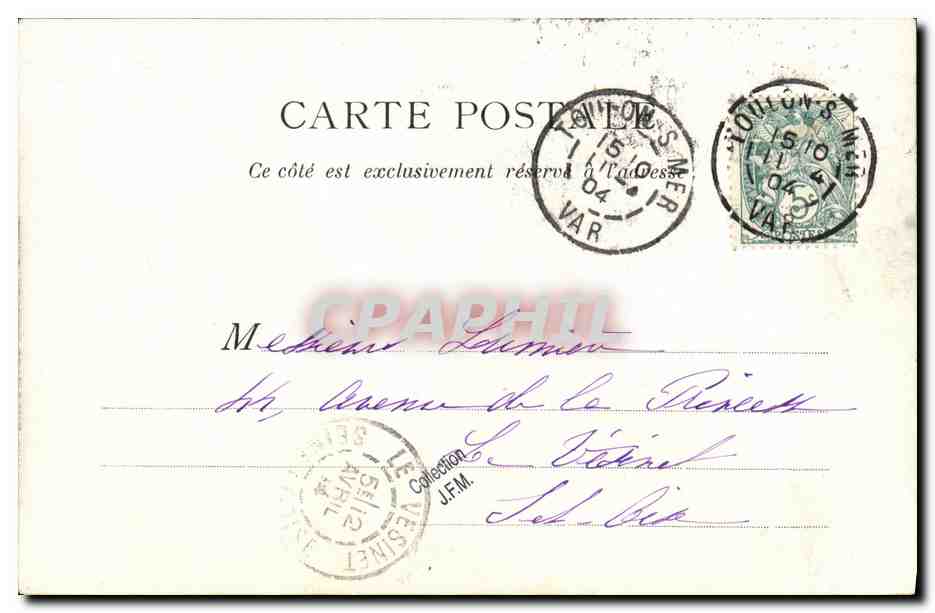 CARTE POSTALE
Ce côté est exclusivement réservé à l'adresse
TOULON-S-MER
15 10
11 4
04
VAR
TOULON-S-MER
15 10
11 4
04
VAR
5c
POSTES
CPAPHIL
Messieurs
44, Avenue de la Princesse
Le Vésinet
Set Oise
Collection
J.F.M.
LE VESINET
5E /12
AVRIL
04
SEINE ET OISE